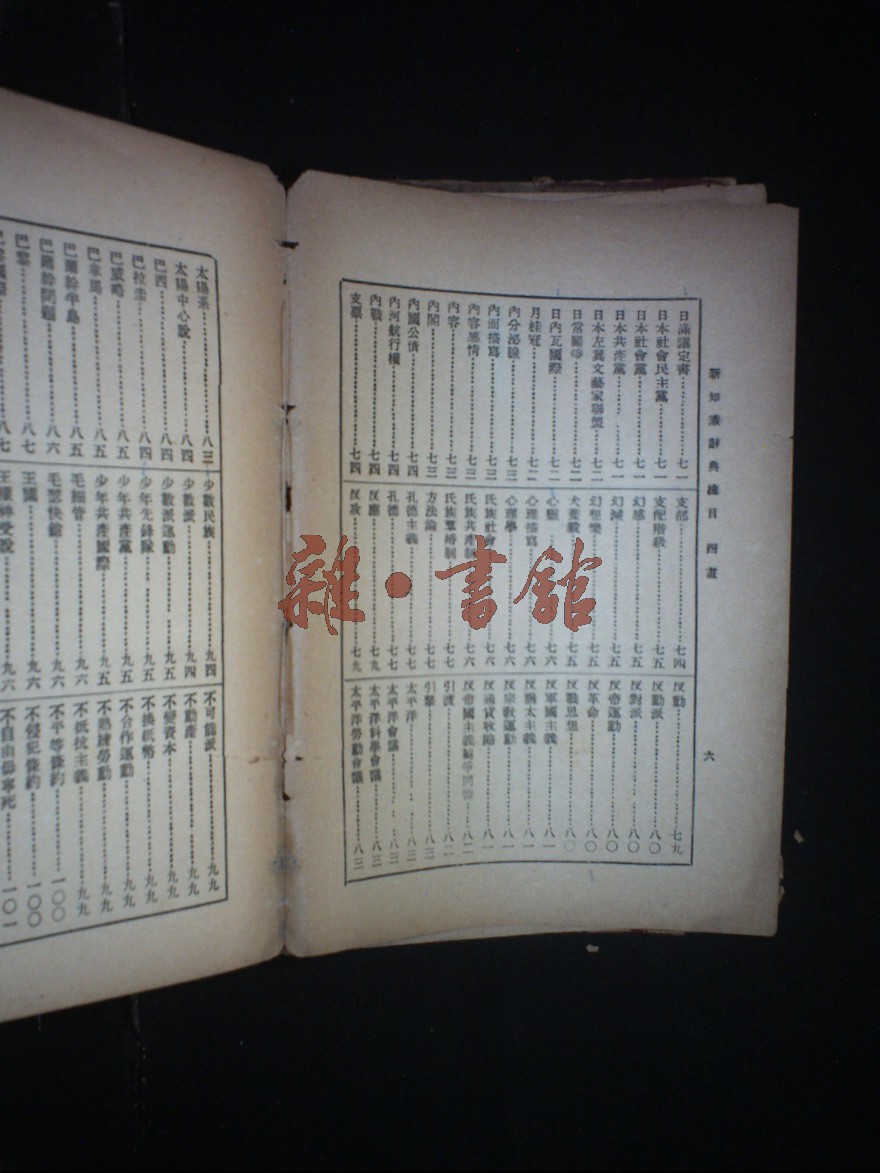 新知識辭典總目 四畫
六
日滿議定書 七一
日本社會民主黨 七一
日本社會黨 七一
日本共產黨 七一
日本左翼文藝家聯盟 七二
日常鬭爭 七二
日內瓦國際 七二
月桂冠 七二
內分泌腺 七三
內面描寫 七三
內容感情 七三
內容 七三
內閣 七三
內國公債 七四
內河航行權 七四
內戰 七四
支票 七四
支部 七四
支配階級 七五
幻感 七五
幻滅 七五
幻想樂 七五
犬養毅 七五
心靈 七六
心理描寫 七六
心理學 七六
氏族社會 七六
氏族共產制 七六
氏族羣婚制 七七
方法論 七七
孔德主義 七七
孔德 七七
反應 七九
反攻 七九
反動 七九
反動派 八〇
反對派 八〇
反帝運動 八〇
反革命 八〇
反戰思想 八〇
反軍國主義 八一
反猶太主義 八一
反宗教運動 八一
反通貨收縮 八一
反帝國主義 八二
引渡 八二
引擎 八三
太平洋 八三
太平洋會議 八三
太平洋科學會議 八三
太平洋勞動會議 八三
太陽系 八三
太陽中心說 八四
巴西 八四
巴拉圭 八四
巴威略 八五
巴拿馬 八五
巴爾幹半島 八五
巴爾幹問題 八六
巴黎 八七
八七
少數民族 九四
少數派 九四
少數派運動 九五
少年先鋒隊 九五
少年共產黨 九五
少年共產國際 九五
毛細管 九六
毛瑟快鎗 九六
王國 九六
王權神受說 九六
不可能派 九九
不動產 九九
不變資本 九九
不換紙幣 九九
不合作運動 九九
不熟練勞動 九九
不抵抗主義 九九
不平等條約 一〇〇
不侵犯條約 一〇〇
不自由毋寧死 一〇一
雜·書館